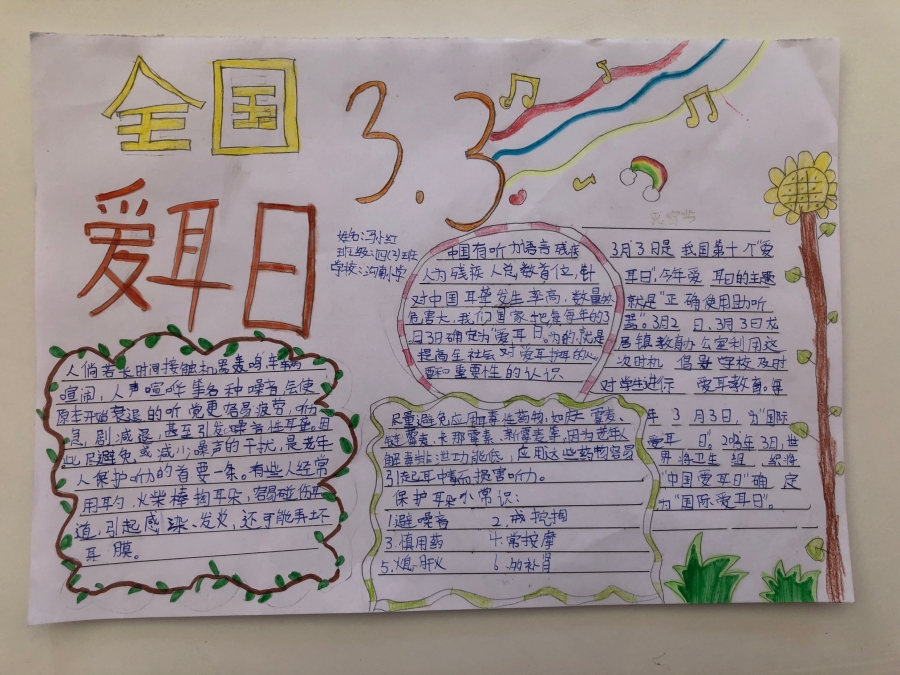 全国
爱耳日
3.3
姓名:马小红
班级:四(3)班
学校:沟南小学
人倘若长时间接触机器轰鸣车辆
喧闹,人声喧哗等各种噪音,会使
原本开始衰退的听觉更容易疲劳,听力
急剧减退,甚至引发噪音性耳聋。因
此尽避免或减少噪声的干扰,是老年
人保护听力的首要一条。有些人经常
用耳勺、火柴棒掏耳朵,容易碰伤耳
道,引起感染、发炎,还可能弄坏
耳膜。
中国有听力语言残疾
人为残疾人总数首位,针
对中国耳聋发生率高,数量多
危害大,我们国家把是每年的3
月3日确定为“爱耳日。为的就是
提高全社会对爱耳护耳的必
要和重要性的认识
尽量避免应用耳毒性药物,如庆大霉素、
链霉素、卡那霉素、新霉素等,因为老年人
解毒排泄功能低,应用这些药物容易
引起耳中毒而损害听力。
保护耳朵小常识:
1.避噪音 2.戒挖掏
3.慎用药 4.常按摩
5.熄肝火 6.勿补肾
3月3日是我国第十个“爱
耳日”,今年爱耳日的主题
就是“正确使用助听
器”。3月2日,3月3日龙
居镇教育办公室利用这
次时机
学校及时
对学生进行爱耳教育。每
年3月3日,为“国际
爱耳日”2013年3月,世
界将卫生组织将
“中国爱耳日”确定
为“国际爱耳日”。